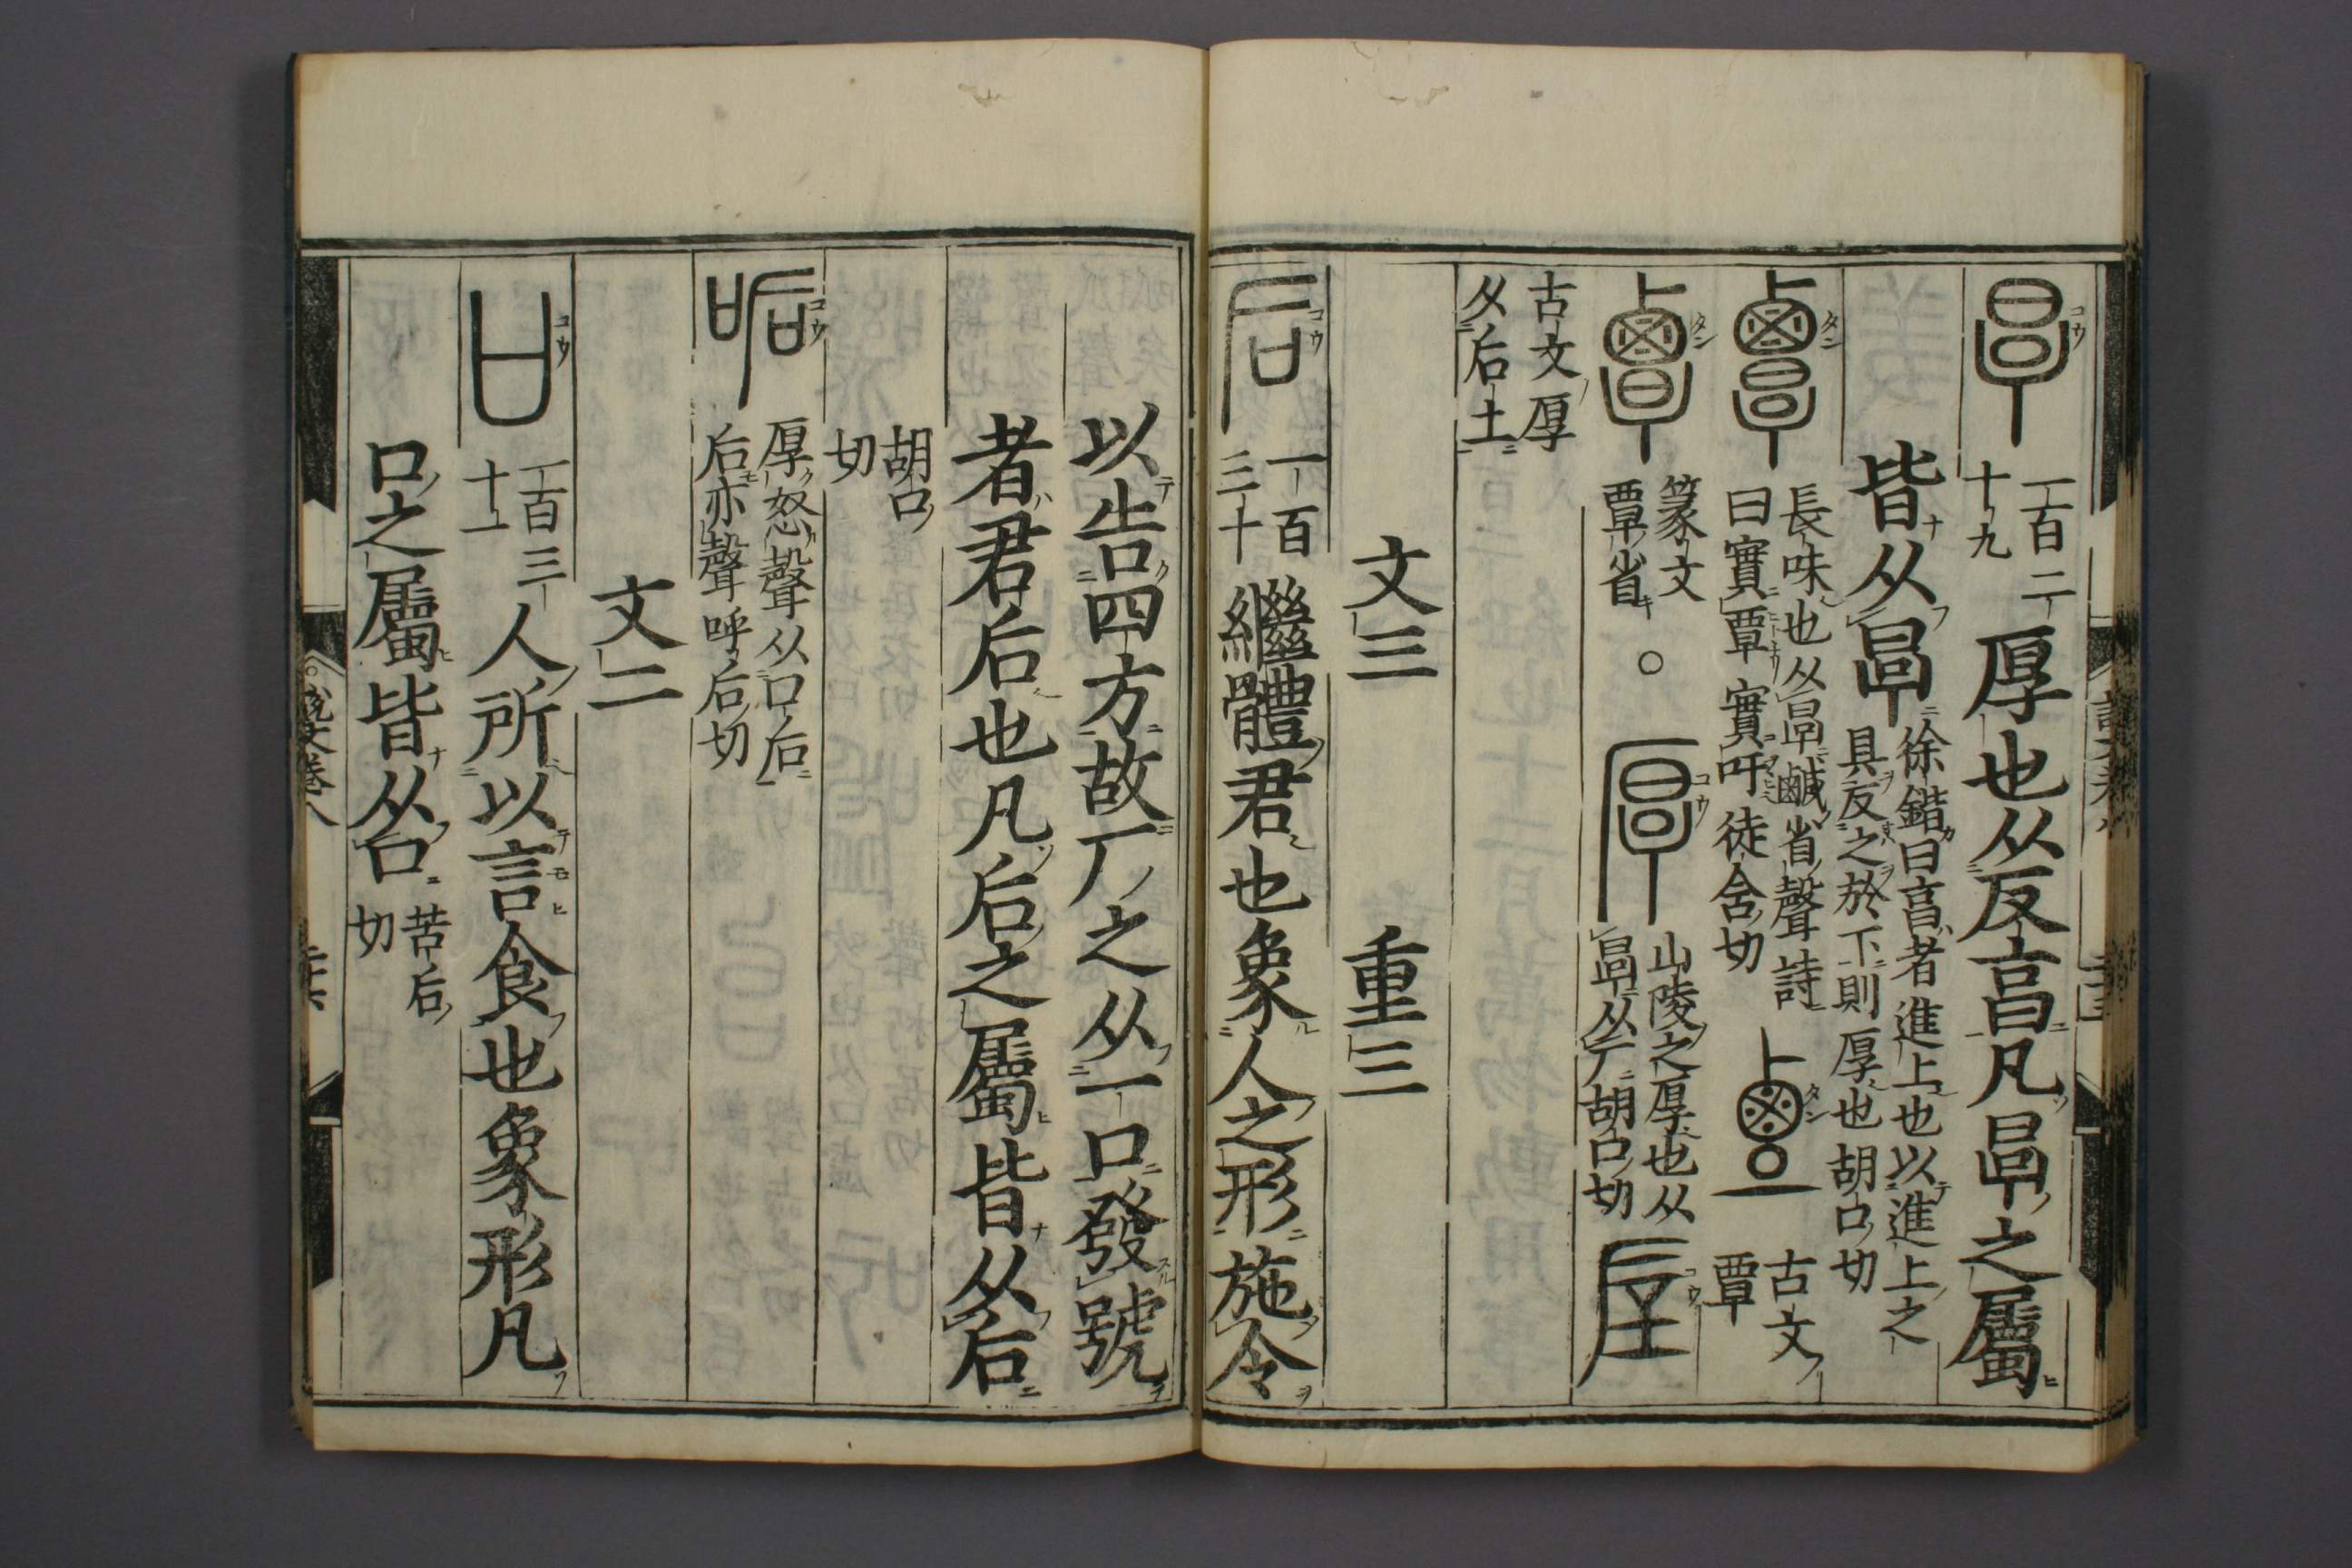 㫗 一百二十九 厚也从反亯凡㫗之屬
皆从㫗 徐鍇曰亯者進上也以進上之具反之於下則厚也胡口切
覃 長味也从㫗鹹省聲詩曰實覃實吁徒含切 古文覃
覃 篆文覃省 ○ 厚 山陵之厚也从㫗从厂胡口切 垕
古文厚从后土
文三 重三
后 一百三十 繼體君也象人之形施令
以告四方故厂之从一口發號
者君后也凡后之屬皆从后
胡口切
㖃 厚怒聲从口后后亦聲呼后切
文二
口 一百三十一 人所以言食也象形凡
口之屬皆从口 苦后切
說文卷八